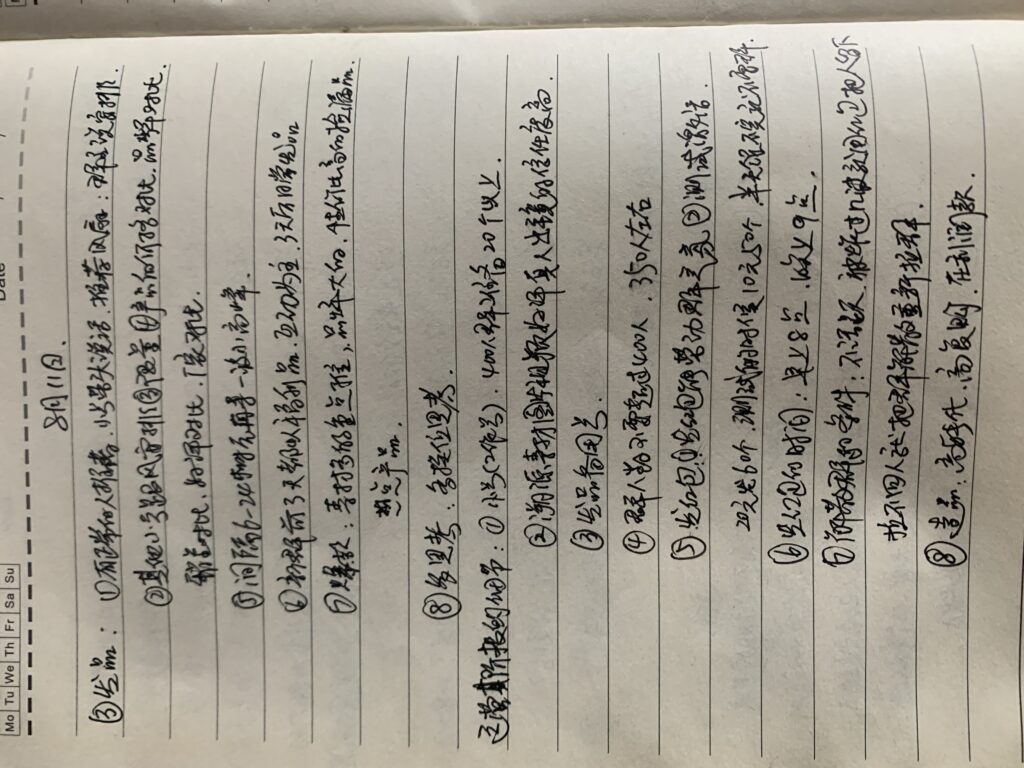 Mo Tu We Th Fr Sa Su
Date / /
8月11日.
③发品: ①有正常的人推荐、小号带头说话、推荐风扇: 群主说安排.
②其他小号跟风安排③限量④产品的价格对比、品牌对比、
销量对比、好评对比、厂家对比.
⑤间隔6-24小时左右再寻一波小高峰.
⑥新群前3天都以福利品、互动为主、3天后日常发品
⑦爆款: 素材多的重点推、品牌大的、性价比高的捡漏品.
热点产品.
⑧多思考: 多换位思考.
运营其阶段的细节: ①小号(2张号)、400人群准备20个以上.
②溯源素材图片视频好评真人出镜的信任度高.
③发品备用号.
④群人数不要超过400人、350人左右
⑤发红包①发红包能带动群气氛②测试激活.
20元发60个、测试的时候10元50个、半天领不完就不看群.
⑥发红包的时间: 早上8点、晚上9点.
⑦解散群的条件: 不活跃、被炸过几波就用红包把人留下
拉不回人就把群解散重新拉群.
⑧选品: 高转化、高复购、在利润款.